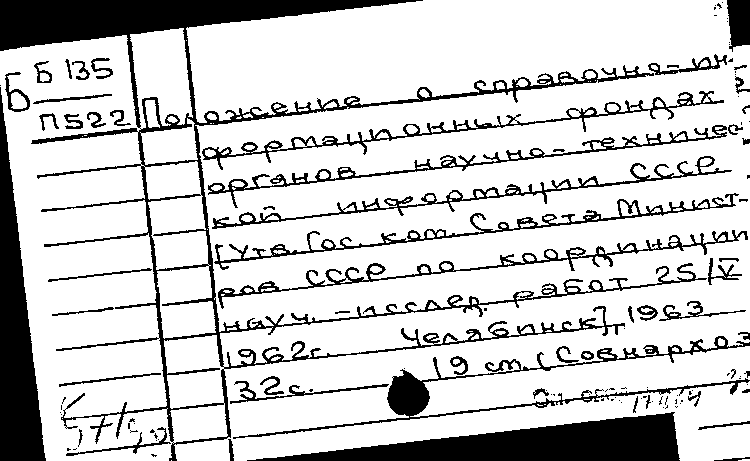 Б Б 135
П522 Положение о справочно-ин-
формационных фондах
органов научно-техничес-
кой информации СССР.
[Утв. Гос. ком. Совета Минист-
ров СССР по координации
науч.-исслед. работ 25/V
1962г. Челябинск], 1963
32с. 19 см. (Совнархоз